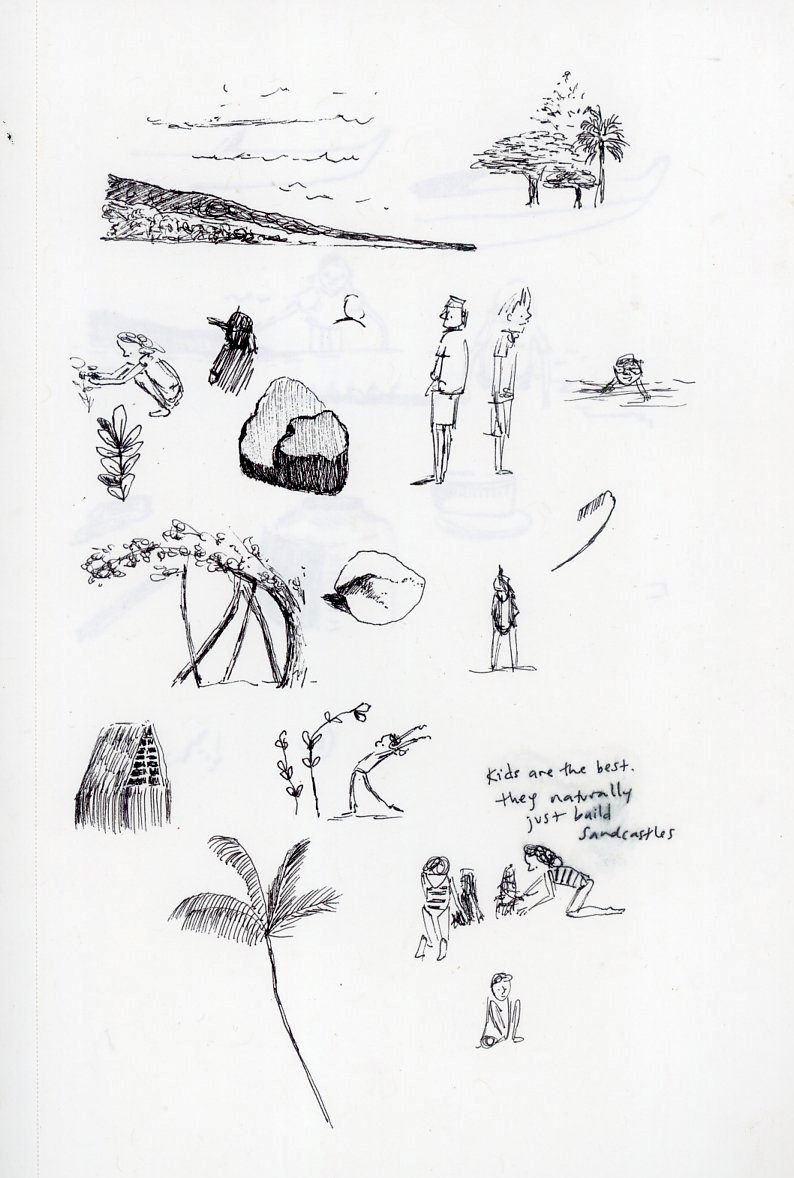 Kids are the best.
they naturally
just build
Sandcastles